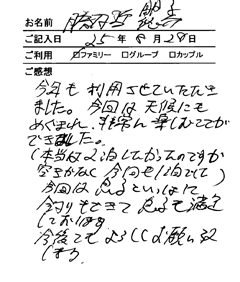 お名前
ご記入日 25年8月28日
ご利用 ☑ファミリー □グループ □カップル
ご感想
今回も利用させていただき
ました。今回は天候にも
めぐまれ、非常に楽しむことが
できました。
(本当は2泊したかったのですが
空きがなく今回も1泊でした)
今回は
釣りもできて 満足
しております
今後ともよろしくお願い致
します